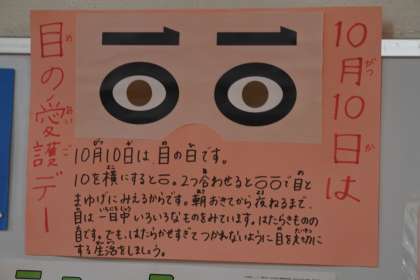 10月10日は
目の愛護デー
10月10日は目の日です。
10を横にすると 。2つ合わせると で目と
まゆげにみえるからです。朝おきてから夜ねるまで、
目は一日中いろいろなものをみています。はたらきものの
目です。でも、はたらかせすぎてつかれないように目を大切に
する生活をしましょう。